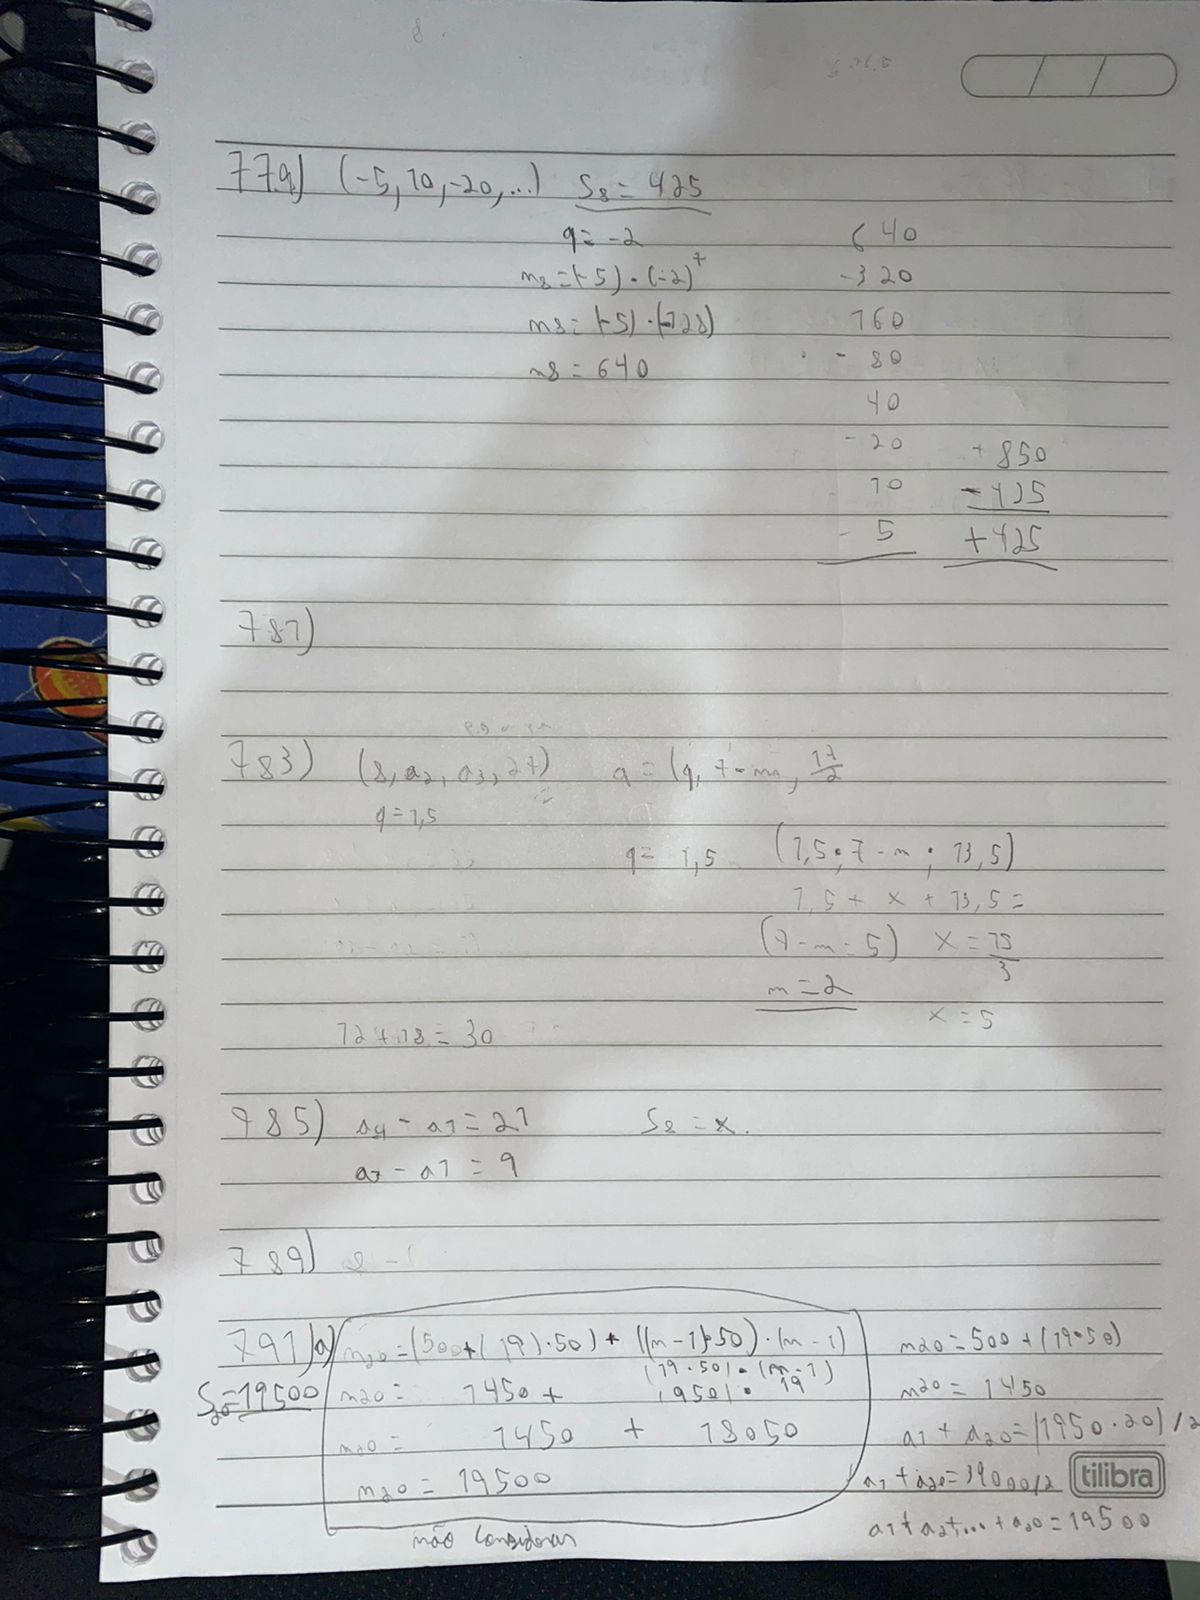 779) (-5, 10, -20, ...) S8 = 425
q = -2
n8 = (-5) · (-2)^7
n8 = (-5) · (-128)
n8 = 640
640
-320
160
- 80
40
- 20
10
- 5
+ 850
- 425
+ 425
781)
783) (8, a2, a3, 27)
q = 1,5
12 + 18 = 30
q = (q, 7 - m, 27/2
q = 1,5 (1,5 ; 7 - m ; 13,5)
1,5 + x + 13,5 =
(7 - m = 5) x = 15/3
m = 2
x = 5
785) a4 - a1 = 21 S8 = x.
a3 - a1 = 9
789)
791) a) n20 = (500 + (19) · 50) + ((n - 1) · 50) · (n - 1)
(19 · 50) · (n - 1)
S20 = 19500 n20 = 1450 + (950) · 19
n20 = 1450 + 18050
n20 = 19500
não considerar
n20 = 500 + (19 · 50)
n20 = 1450
a1 + a20 = (1950 · 20) / 2
a1 + a20 = 39000/2
a1 + a2 + ... + a20 = 19500
tilibra